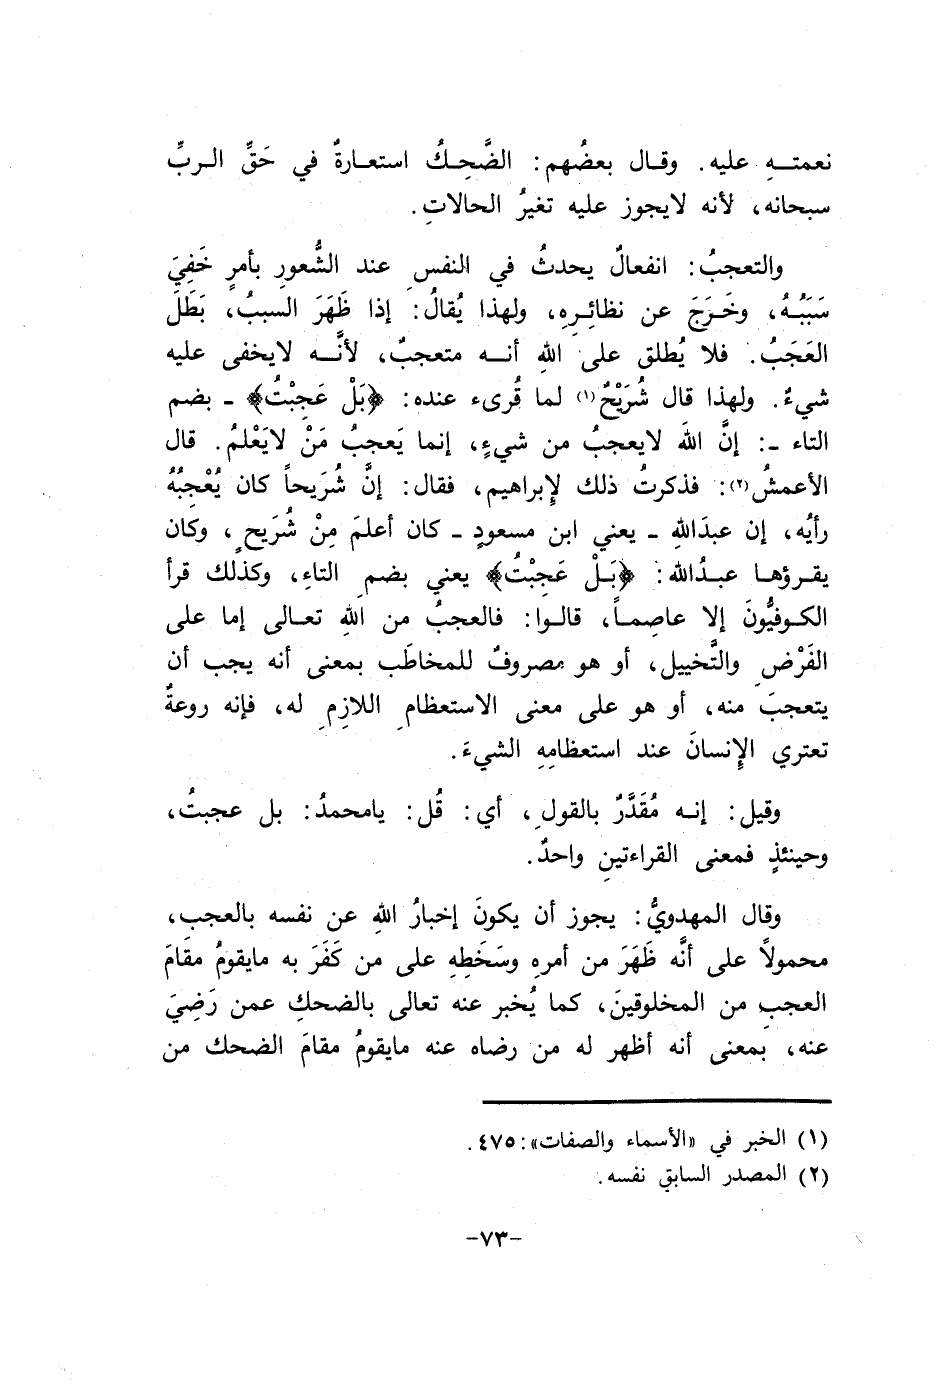 نعمتــهِ عليه. وقـال بعضُهم: الضَّحِـكُ استعـارةٌ في حَقِّ الـربِّ
سبحانه، لأنه لايجوز عليه تغيرُ الحالاتِ.
والتعجبُ: انفعالٌ يحدثُ في النفسِ عند الشُّعورِ بأمرٍ خَفِيَ
سَبَبُـهُ، وخَـرَجَ عن نظائِـرِه، ولهذا يُقالُ: إذا ظَهَرَ السببُ، بَطَلَ
العَجَبُ. فلا يُطلق على اللهِ أنــه متعجبٌ، لأنَّــه لايخفى عليه
شيءٌ. ولهذا قال شُرَيْحٌ(١) لما قُرىء عنده: ﴿بَلْ عَجِبْتُ﴾ ـ بضم
التاء ـ: إنَّ اللهَ لايعجبُ من شيءٍ، إنما يَعجبُ مَنْ لايَعْلمُ. قال
الأعمشُ(٢): فذكرتُ ذلك لإبراهيم، فقال: إنَّ شُرَيحاً كان يُعْجِبُهُ
رأيُه، إن عبدَالله ـ يعني ابن مسعودٍ ـ كان أعلمَ مِنْ شُرَيحٍ، وكان
يقـرؤهـا عبـدُالله: ﴿بَـلْ عَجِبْتُ﴾ يعني بضمِ التاءِ، وكذلك قرأ
الكـوفيُّونَ إلا عاصِمـاً، قالـوا: فالعجبُ من اللهِ تعـالى إما على
الفَرْضِ والتَّخييل، أو هو مصروفٌ للمخاطَب بمعنى أنه يجب أن
يتعجبَ منه، أو هو على معنى الاستعظامِ اللازِمِ له، فإنه روعةٌ
تعتري الإنسانَ عند استعظامِهِ الشيءَ.
وقيل: إنــه مُقَدَّرٌ بالقولِ، أي: قُل: يامحمدُ: بل عجبتُ،
وحينئذٍ فمعنى القراءتينِ واحدٌ.
وقال المهدويُّ: يجوز أن يكونَ إخبارُ اللهِ عن نفسه بالعجبِ،
محمولاً على أنَّه ظَهَرَ من أمرهِ وسَخَطِهِ على من كَفَرَ به مايقومُ مقامَ
العجبِ من المخلوقينَ، كما يُخبر عنه تعالى بالضحكِ عمن رَضِيَ
عنه، بمعنى أنه أظهر له من رضاه عنه مايقومُ مقامَ الضحك من
(١) الخبر في «الأسماء والصفات»: ٤٧٥.
(٢) المصدر السابق نفسه.
-٧٣-